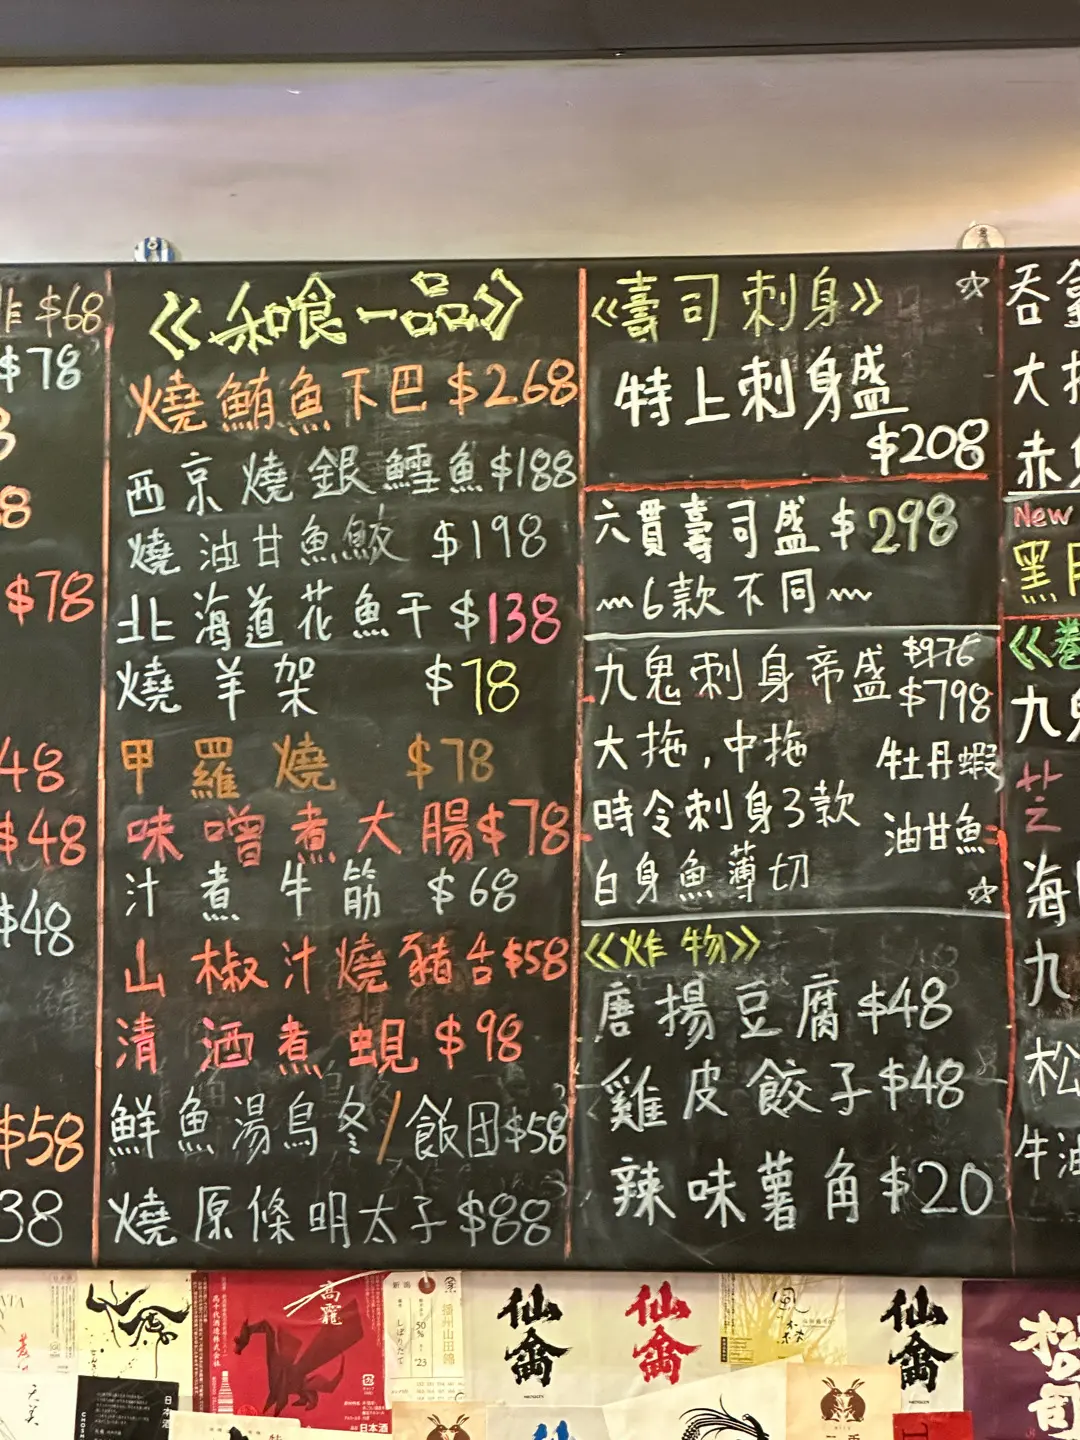 $68
$78
$78
48
$48
$48
$58
38
《和喰一品》
燒鮪魚下巴 $268
西京燒銀鱈魚 $188
燒油甘魚鮫 $198
北海道花魚干 $138
燒羊架 $78
甲羅燒 $78
味噌煮大腸 $78
汁煮牛筋 $68
山椒汁燒豬台 $58
清酒煮蜆 $98
鮮魚湯烏冬/飯団 $58
燒原條明太子 $88
《壽司刺身》 ☆
特上刺身盛
$208
六貫壽司盛 $298
~6款不同~
九鬼刺身帝盛 $975 $798
大拖,中拖 牡丹蝦,
時令刺身3款 油甘魚
白身魚薄切 ☆
《炸物》
唐揚豆腐 $48
雞皮餃子 $48
辣味薯角 $20
吞
大拖
赤
New
黑
《卷
九鬼
芝
海
九
松
牛油
高龗
高千代酒造株式会社
日本酒
播州山田錦
50%
しぼりたて
'23
仙禽
仙禽
風の森
仙禽
日本酒